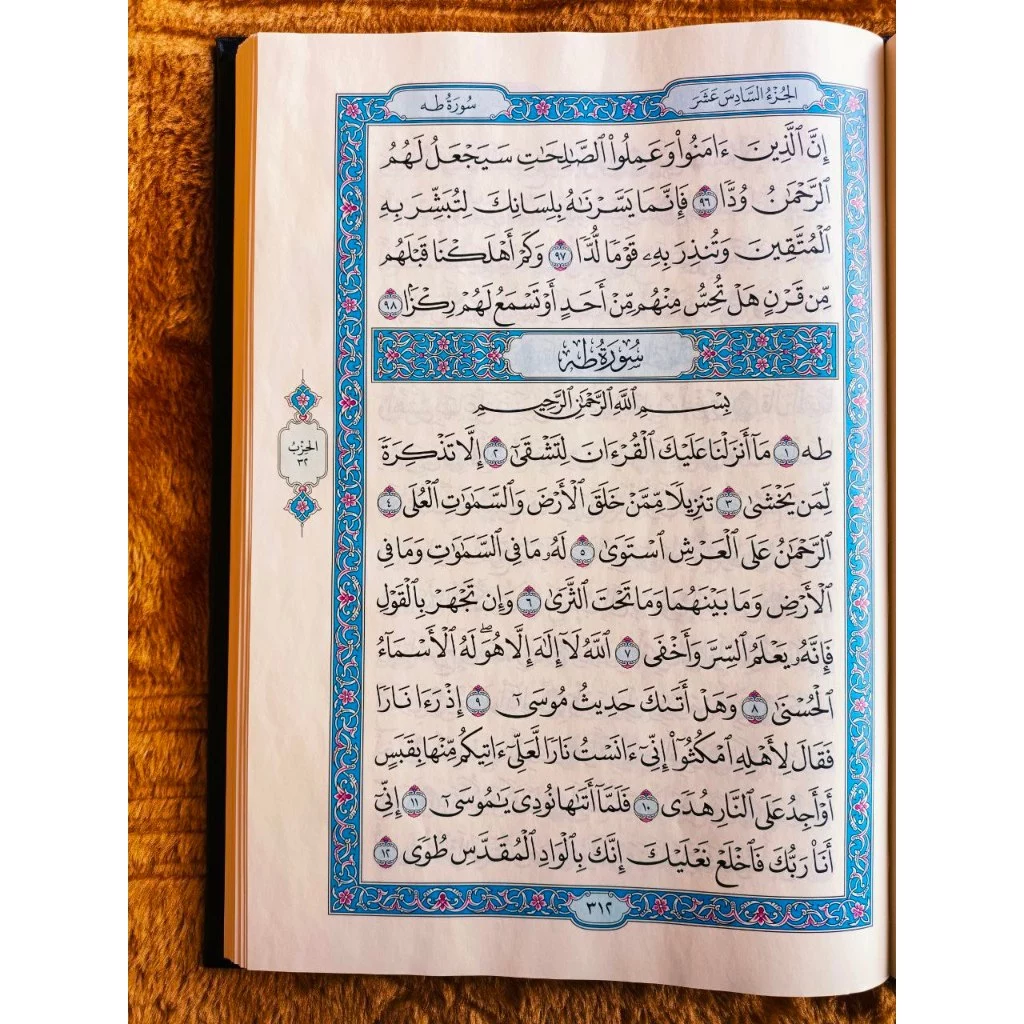 الجُزْءُ السَّادِسَ عَشَرَ
سُورَةُ طه
إِنَّ ٱلَّذِينَ ءَامَنُوا۟ وَعَمِلُوا۟ ٱلصَّـٰلِحَـٰتِ سَيَجْعَلُ لَهُمُ
ٱلرَّحْمَـٰنُ وُدًّا ٩٦ فَإِنَّمَا يَسَّرْنَـٰهُ بِلِسَانِكَ لِتُبَشِّرَ بِهِ
ٱلْمُتَّقِينَ وَتُنذِرَ بِهِۦ قَوْمًا لُّدًّا ٩٧ وَكَمْ أَهْلَكْنَا قَبْلَهُم
مِّن قَرْنٍ هَلْ تُحِسُّ مِنْهُم مِّنْ أَحَدٍ أَوْ تَسْمَعُ لَهُمْ رِكْزًۢا ٩٨
سُورَةُ طه
بِسْمِ ٱللَّهِ ٱلرَّحْمَـٰنِ ٱلرَّحِيمِ
طه ١ مَآ أَنزَلْنَا عَلَيْكَ ٱلْقُرْءَانَ لِتَشْقَىٰٓ ٢ إِلَّا تَذْكِرَةً
لِّمَن يَخْشَىٰ ٣ تَنزِيلًا مِّمَّنْ خَلَقَ ٱلْأَرْضَ وَٱلسَّمَـٰوَٰتِ ٱلْعُلَى ٤
ٱلرَّحْمَـٰنُ عَلَى ٱلْعَرْشِ ٱسْتَوَىٰ ٥ لَهُۥ مَا فِى ٱلسَّمَـٰوَٰتِ وَمَا فِى
ٱلْأَرْضِ وَمَا بَيْنَهُمَا وَمَا تَحْتَ ٱلثَّرَىٰ ٦ وَإِن تَجْهَرْ بِٱلْقَوْلِ
فَإِنَّهُۥ يَعْلَمُ ٱلسِّرَّ وَأَخْفَى ٧ ٱللَّهُ لَآ إِلَـٰهَ إِلَّا هُوَ ۖ لَهُ ٱلْأَسْمَآءُ
ٱلْحُسْنَىٰ ٨ وَهَلْ أَتَىٰكَ حَدِيثُ مُوسَىٰٓ ٩ إِذْ رَءَا نَارًا
فَقَالَ لِأَهْلِهِ ٱمْكُثُوٓا۟ إِنِّىٓ ءَانَسْتُ نَارًا لَّعَلِّىٓ ءَاتِيكُم مِّنْهَا بِقَبَسٍ
أَوْ أَجِدُ عَلَى ٱلنَّارِ هُدًى ١٠ فَلَمَّآ أَتَىٰهَا نُودِىَ يَـٰمُوسَىٰٓ ١١ إِنِّىٓ
أَنَا۠ رَبُّكَ فَٱخْلَعْ نَعْلَيْكَ ۖ إِنَّكَ بِٱلْوَادِ ٱلْمُقَدَّسِ طُوًى ١٢
الحِزْبُ
٣٢
٣١٢